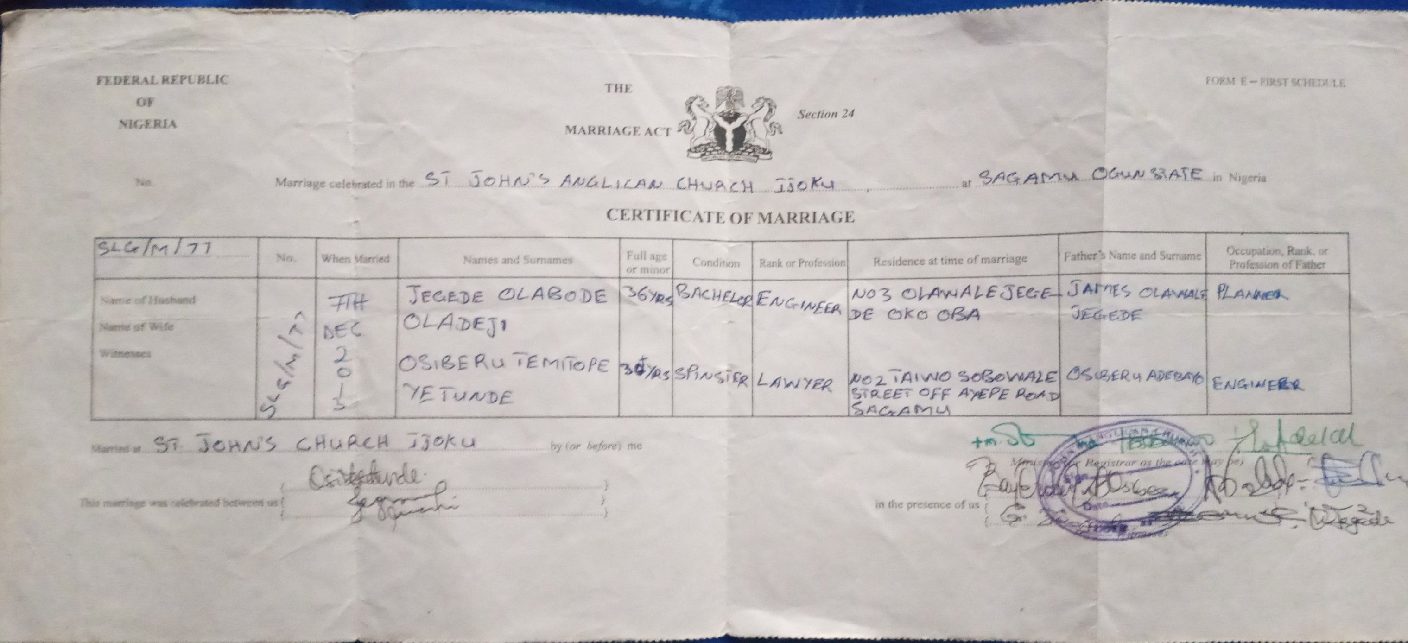 FEDERAL REPUBLIC
OF
NIGERIA
THE
MARRIAGE ACT
Section 24
FORM E – FIRST SCHEDULE
No.
Marriage celebrated in the ST JOHN'S ANGLICAN CHURCH IJOKU, at SAGAMU OGUN STATE in Nigeria
CERTIFICATE OF MARRIAGE
SLG/M/77
No.
When Married
Names and Surnames
Full age
or minor
Condition
Rank or Profession
Residence at time of marriage
Father's Name and Surname
Occupation, Rank, or
Profession of Father
Name of Husband
Name of Wife
Witnesses
SLG/M/77
7TH
DEC
2
0
1
3
JEGEDE OLABODE
OLADEJI
36YRS
BACHELOR
ENGINEER
NO3 OLAWALE JEGE
DE OKO OBA
JAMES OLAWALE
JEGEDE
PLANNER
OSIBERU TEMITOPE
YETUNDE
YRS
SPINSTER
LAWYER
NO2 TAIWO SOBOWALE
STREET OFF AYEPE ROAD
SAGAMU
OSIBERU ADEBAYO
ENGINEER
Married at ST. JOHN'S CHURCH IJOKU by (or before) me
Registrar as the case may be)
This marriage was celebrated between us
in the presence of us
Date